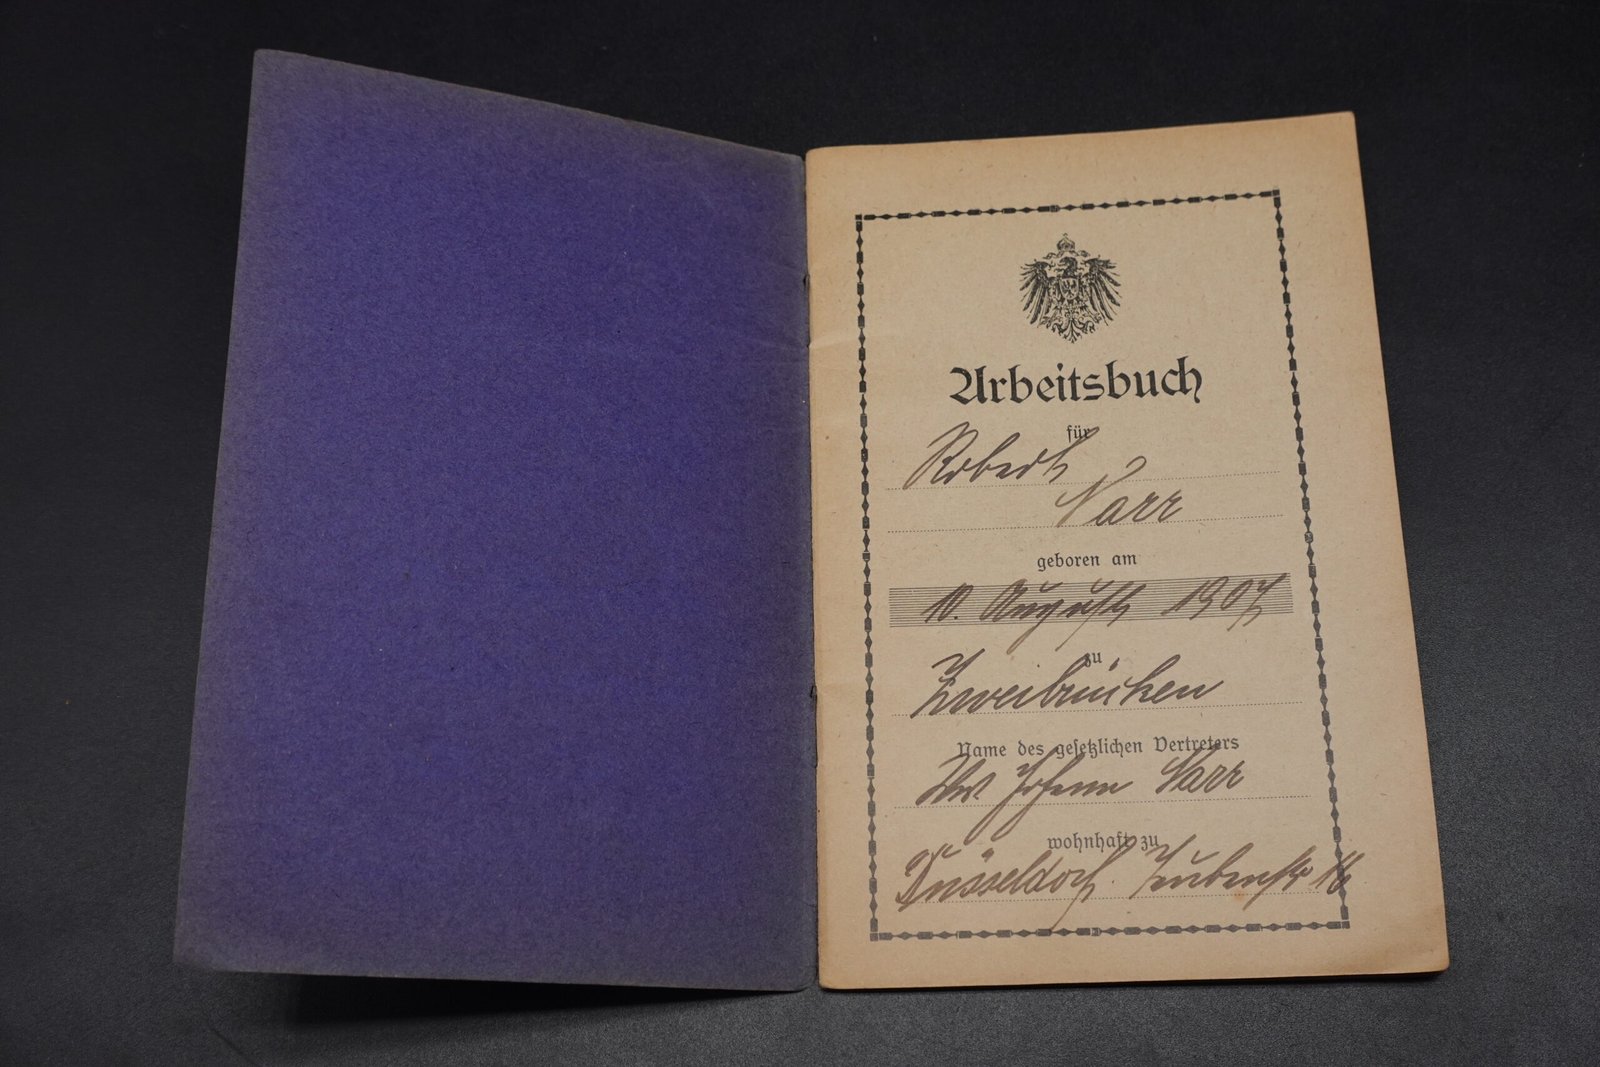 Arbeitsbuch
für
Robert
Narr
geboren am
10. August 1907
zu
Zweibrücken
Name des gesetzlichen Vertreters
Ww Johann Narr
wohnhaft zu
Düsseldorf. 16